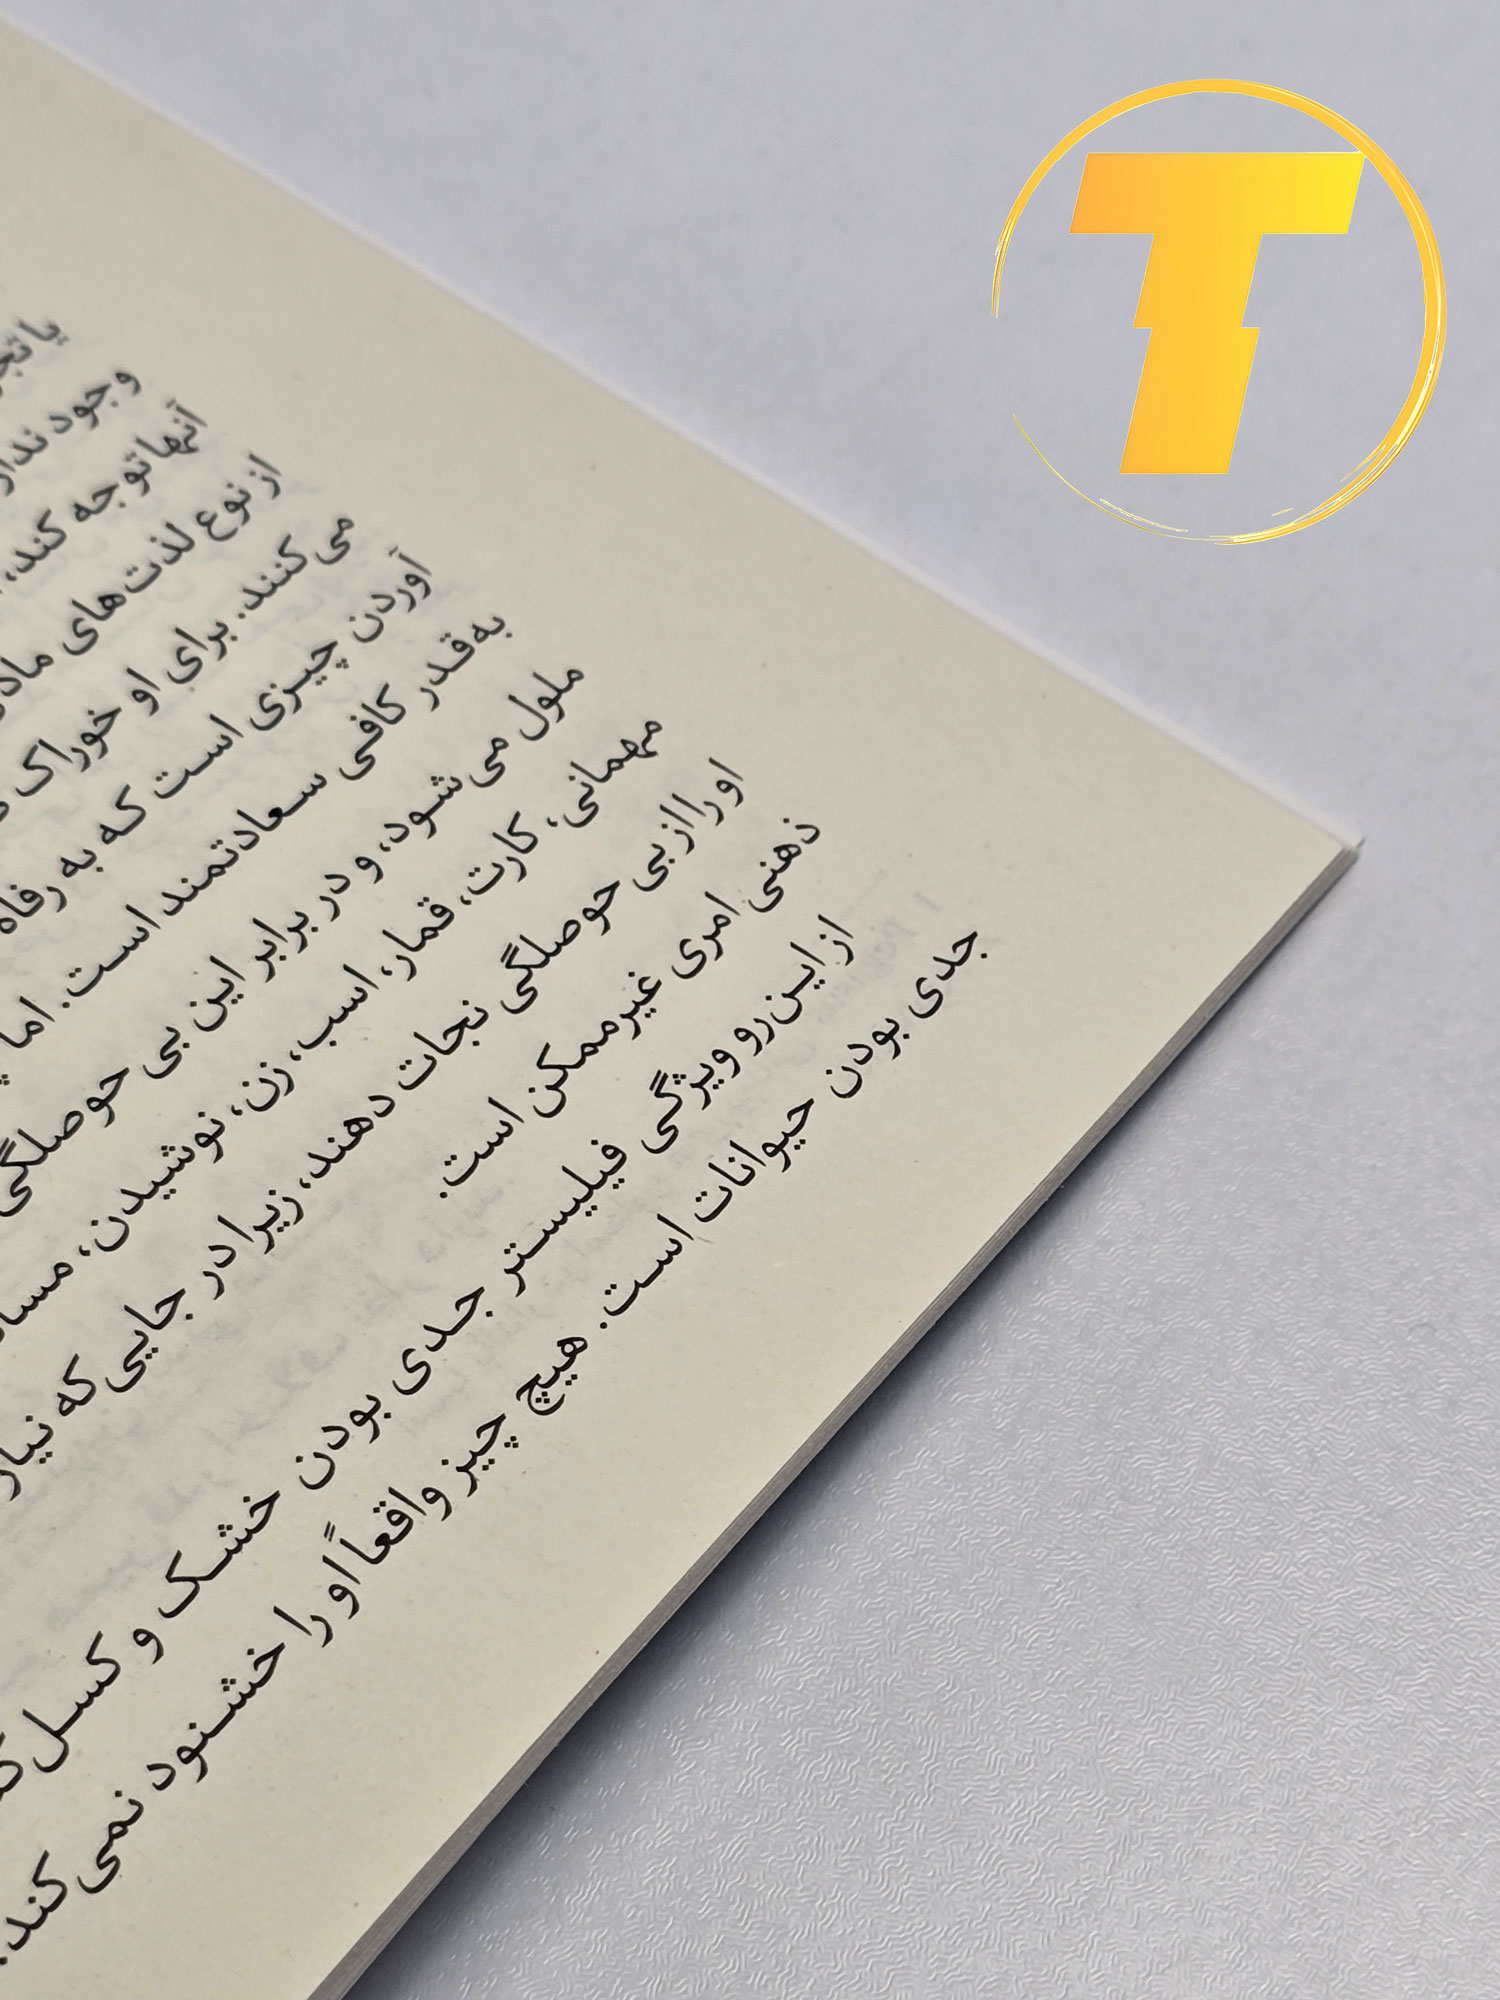 T
یا تجر
وجود ندار
آنها توجه کند،
از نوع لذت‌های ماد
می‌کنند. برای او خوراک
آوردن چیزی است که به رفاه
به‌قدر کافی سعادتمند است. اما
ملول می‌شود، و در برابر این بی‌حوصلگی
مهمانی، کارت، قمار، اسب، زن، نوشیدن، مسا
او را از بی‌حوصلگی نجات دهند، زیرا در جایی که نیاز
ذهنی امری غیرممکن است.
از این‌رو ویژگی فیلیستر جدی بودن خشک و کسل‌ک
جدی بودن حیوانات است. هیچ چیز واقعاً او را خشنود نمی‌کند.